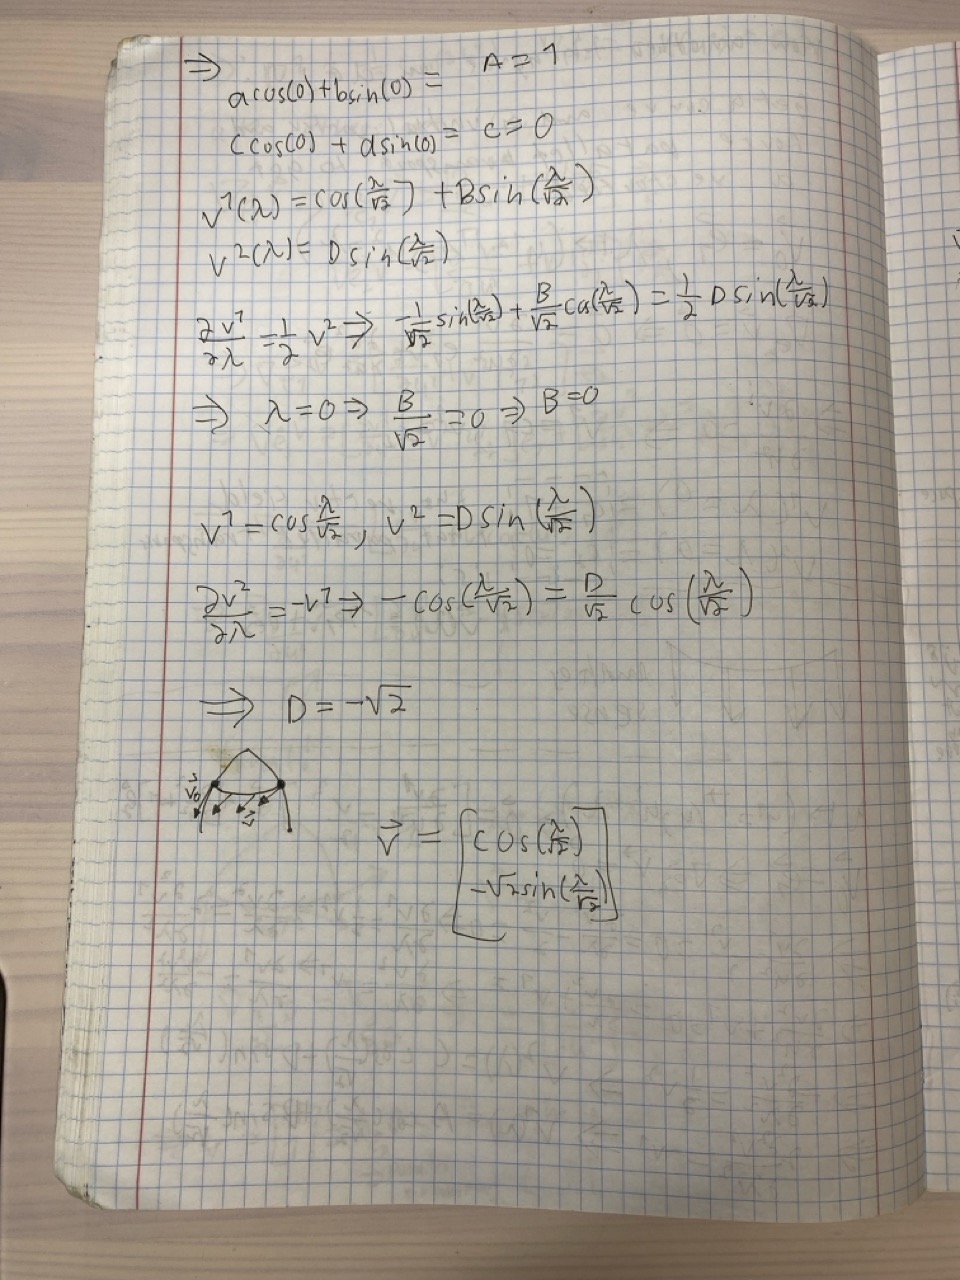 ⇒ acos(0)+bsin(0) = A = 1
Ccos(0) + dsin(0) = c = 0
v¹(λ) = cos(λ/√2) + Bsin(λ/√2)
v²(λ) = Dsin(λ/√2)
∂v¹/∂λ = 1/2 v² ⇒ -1/√2 sin(λ/√2) + B/√2 cos(λ/√2) = 1/2 Dsin(λ/√2)
⇒ λ=0 ⇒ B/√2 = 0 ⇒ B=0
v¹ = cos λ/√2, v² = Dsin(λ/√2)
∂v²/∂λ = -v¹ ⇒ -cos(λ/√2) = D/√2 cos(λ/√2)
⇒ D = -√2
v⃗₀
v⃗
v⃗ = [cos(λ/√2)
-√2sin(λ/√2)]